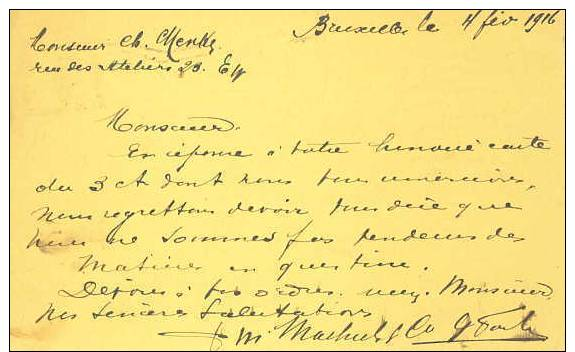 Bruxelles le 4 fév 1916
Monsieur Ch.
rue des Ateliers 23. E/V
Monsieur.
En réponse à votre honoré carte
du 3 ct dont nous vous remercions,
nous regrettons devoir vous dire que
nous ne sommes pas vendeurs des
matières en question.
Dévoués à vos ordres. Monsieur,
nos sincères salutations
& Co